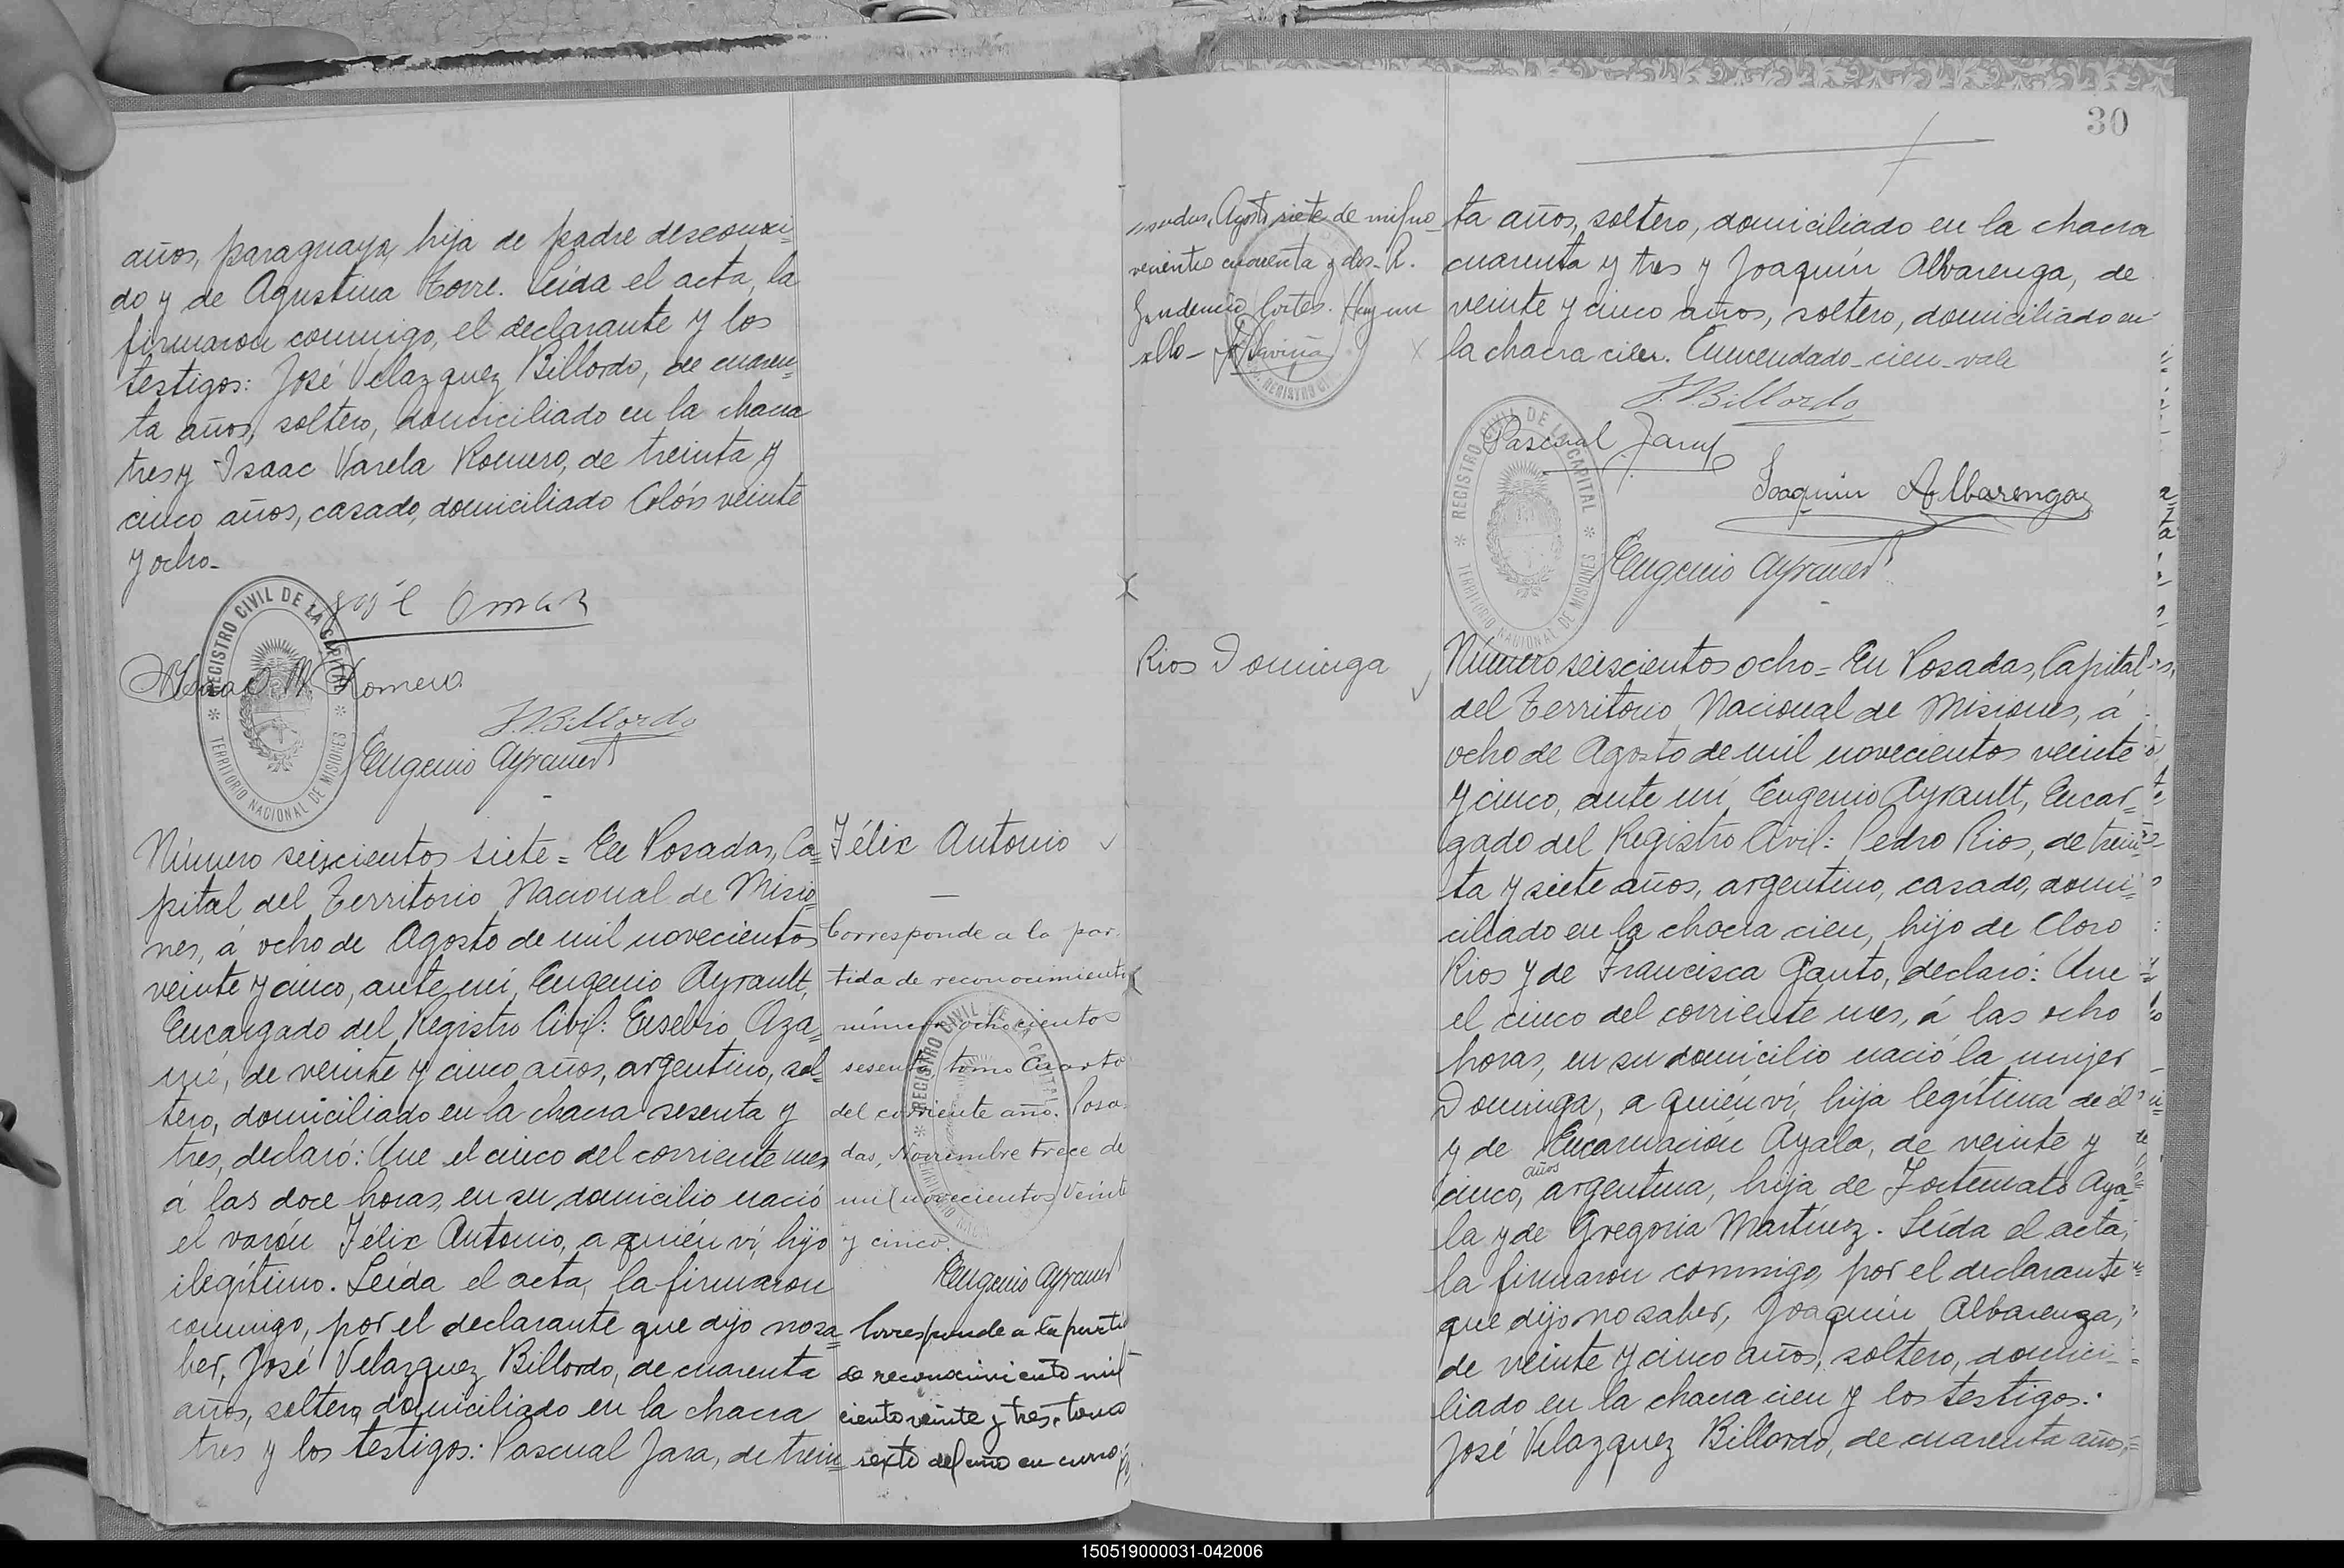 años, paraguaya, hija de padre desconoci=
do y de Agustina Torre. Leída el acta, la
firmaron conmigo, el declarante y los
testigos: José Velazquez Billordo, de cuaren=
ta años, soltero, domiciliado en la chacra
tres y Isaac Varela Romero, de treinta y
cinco años, casado, domiciliado Colón veinte
y ocho-
José Omar
Isaac V. Romero
J.V.Billordo
Eugenio Ayrault
REGISTRO CIVIL DE LA CAPITAL
TERRITORIO NACIONAL DE MISIONES
Número seiscientos siete= En Posadas, Ca=
pital del Territorio Nacional de Misio=
nes, á ocho de Agosto de mil novecientos
veinte y cinco, ante mí, Eugenio Ayrault,
Encargado del Registro Civil: Eusebio Aza=
, de veinte y cinco años, argentino, sol=
tero, domiciliado en la chacra sesenta y
tres, declaró: Que el cinco del corriente mes
á las doce horas, en su domicilio nació
el varón Félix Antonio, a quién ví, hijo
ilegítimo. Leída el acta, la firmaron
conmigo, por el declarante que dijo no sa=
ber, José Velazquez Billordo, de cuarenta
años, soltero, domiciliado en la chacra
tres y los testigos: Pascual Jara, de trein=
Félix Antonio
Corresponde a la par
tida de reconocimiento
número ochocientos
sesenta tomo Cuarto
del corriente año. Posa
das, Noviembre trece de
mil novecientos Veinte
y cinco.
Eugenio Ayrault
REGISTRO CIVIL DE LA CAPITAL
Corresponde a la partid
de reconocimiento mil
ciento veinte y tres, tomo
sexto del año en curso
30
Agosto siete de mil no
vecientos cuarenta y dos- R.
Cortes. Hay un
sello-
REGISTRO CI
ta años, soltero, domiciliado en la chacra
cuarenta y tres y Joaquín Albarenga, de
veinte y cinco años, soltero, domiciliado en
la chacra cien. Enmendado-cien-vale
J.V.Billordo
Pascual Jara
Joaquin Albarenga
Eugenio Ayrault
REGISTRO CIVIL DE LA CAPITAL
TERRITORIO NACIONAL DE MISIONES
Rios Dominga
Número seiscientos ocho= En Posadas, Capital
del Territorio Nacional de Misiones, á
ocho de Agosto de mil novecientos veinte
y cinco, ante mí, Eugenio Ayrault, Encar=
gado del Registro Civil: Pedro Rios, de trein=
ta y siete años, argentino, casado, domi=
ciliado en la chacra cien, hijo de Cloro
Rios y de Francisca Gauto, declaró: Que
el cinco del corriente mes, á las ocho
horas, en su domicilio nació la mujer
Dominga, a quién ví, hija legítima de él
y de Encarnación Ayala, de veinte y
cinco, años argentina, hija de Fortunato Aya=
la y de Gregoria Martínez. Leída el acta,
la firmaron conmigo, por el declarante
que dijo no saber, Joaquín Albarenga,
de veinte y cinco años, soltero, domici=
liado en la chacra cien y los testigos:
José Velazquez Billordo, de cuarenta años,
150519000031-042006